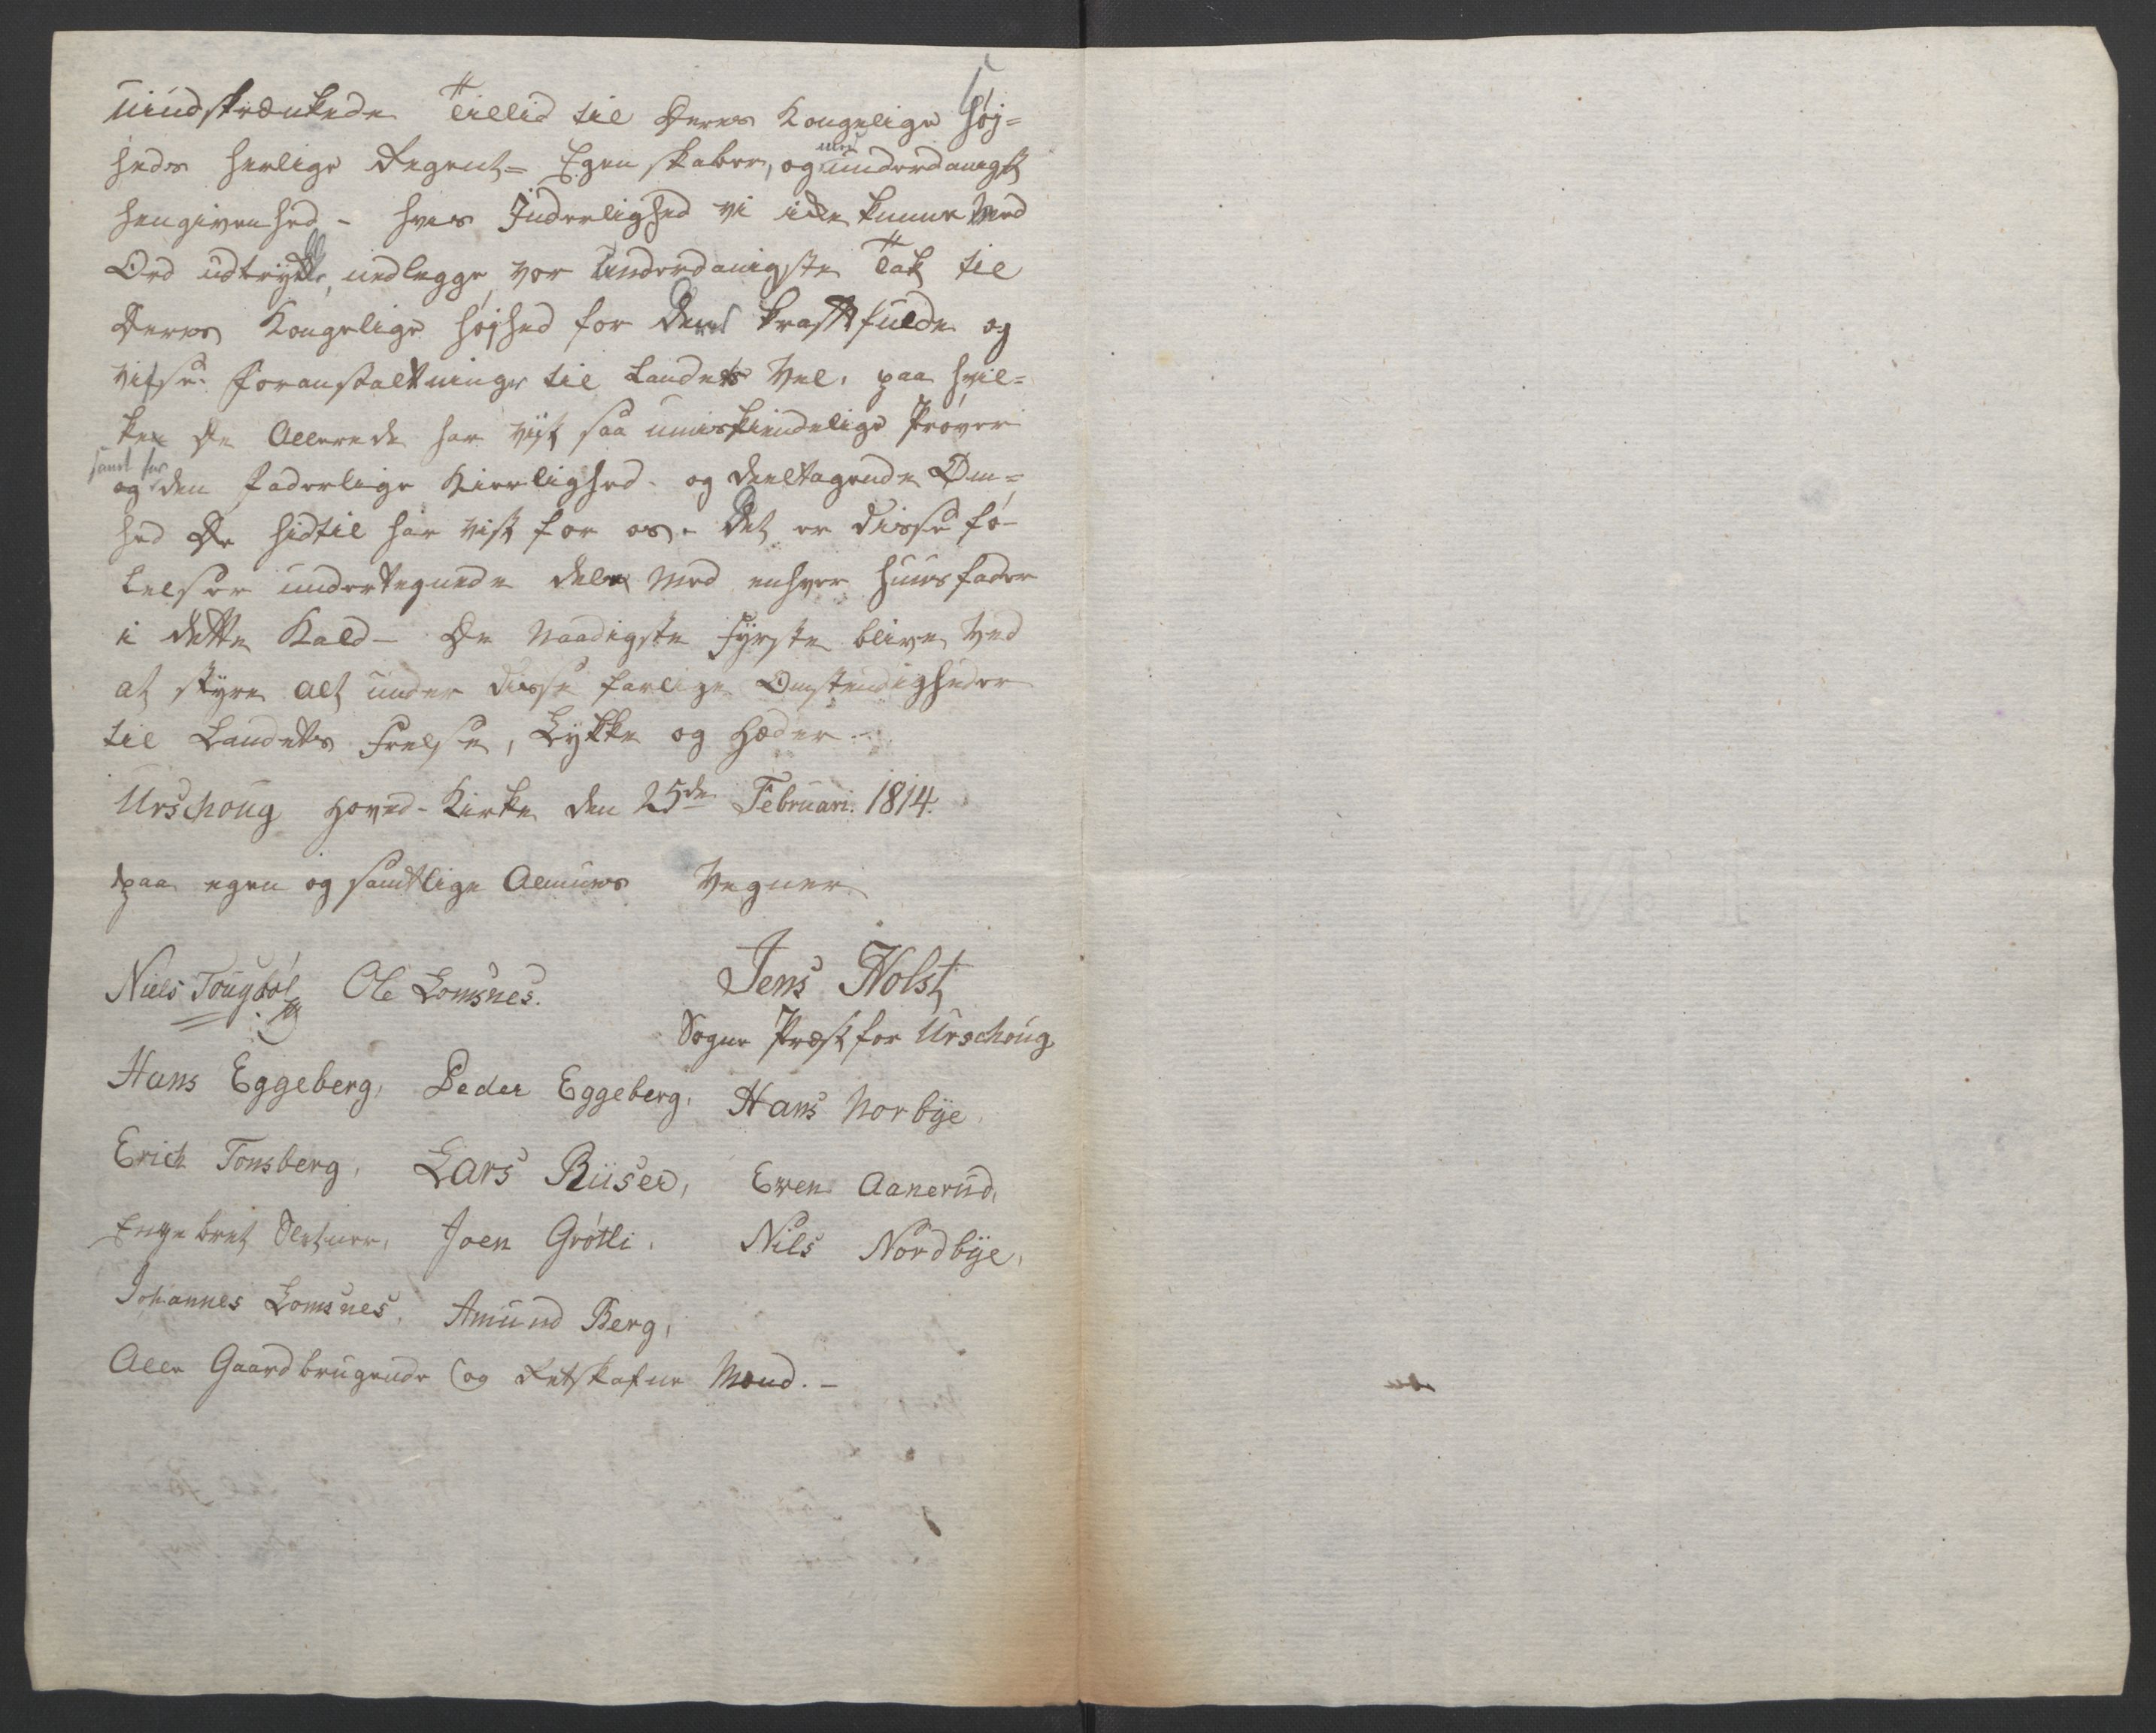 uindskrænkede Tillid til Deres Kongelige Høj=
heds herlige Regent= Egenskaber, og med underdanigst
hengivenhed – hves Inderlighed vi icke kunne Med
Ord udtrykke, nedlegge vor underdanigste Tak til
Deres Kongelige Højhed for Deres kraftfulde og
viise Foranstaltninger til Landets Vel, paa hvil=
ken De Allerede har viist saa umiskiendelige Prøver
og samt for den faderlige Kierlighed og deeltagende Øm=
hed De hidtil har vist for os. Det er disse fø-
lelser undertegnede deler Med enhver Huusfader
i dette Kald – De Naadigste Fyrste blive ved
at styre alt under disse farlige Omstendigheder
til Landets Frelse, Lykke og Hæder –
Urschoug Hoved-Kirke den 25de Februari. 1814.
paa egen og samtlige Almues Vegner
Niels Tougbøl Ole Lomsnes. Jens Holst
Sogne Præst for Urschoug
Hans Eggeberg, Peder Eggeberg, Hans Norbye,
Erich Tonsberg, Lars Riiser, Even Aanerud,
Engebret Sletner, Joen Grøtli, Nils Nordbye,
Johannes Lomsnes, Amund Berg,
Alle Gaardbrugende og Retskafne Mænd. –